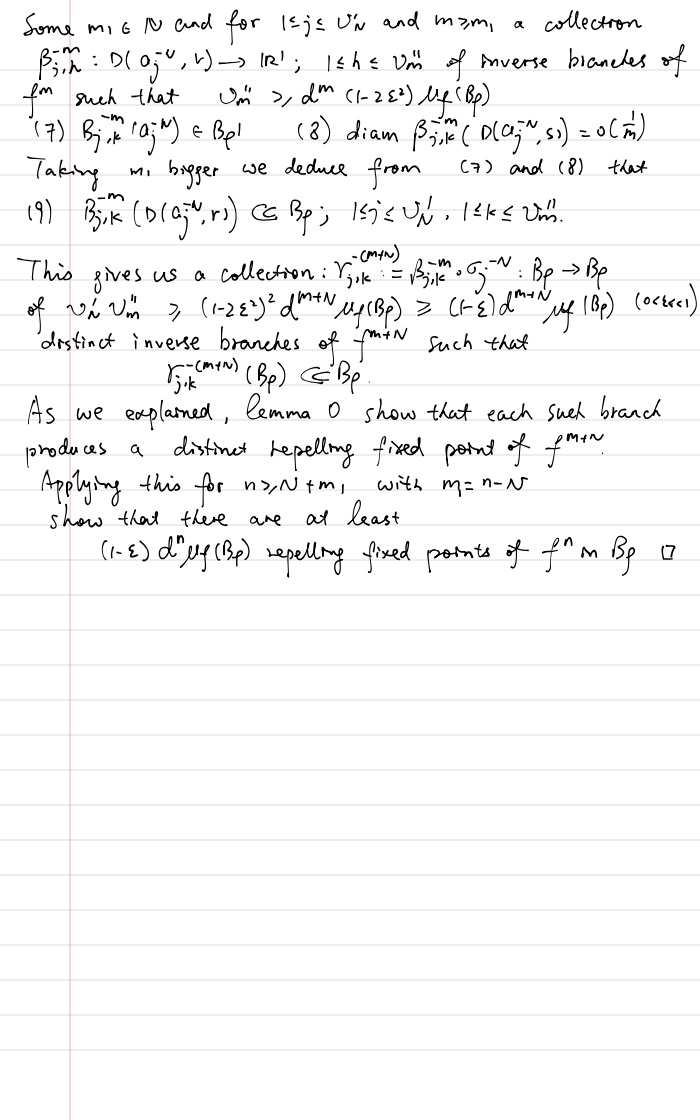 Some m₁ ∈ ℕ and for 1≤j≤υ'_N and m≥m₁ a collection
β_{j,h}^{-m} : D(a_j^{-N}, r) → ℙ¹ ; 1≤h≤υ''_m of inverse branches of
f^m such that υ''_m ≥ d^m (1-2ε²) μ_f(B_ρ)
(7) B_{j,k}^{-m}(a_j^{-N}) ∈ B_{ρ'} (8) diam β_{j,k}^{-m}(D(a_j^{-N}, s) = o(1/m)
Taking m₁ bigger we deduce from (7) and (8) that
(9) β_{j,k}^{-m}(D(a_j^{-N}, r)) ⊂⊂ B_ρ ; 1≤j≤υ'_N, 1≤k≤υ''_m.
This gives us a collection : γ_{j,k}^{-(m+N)} := β_{j,k}^{-m} ∘ σ_j^{-N} : B_ρ → B_ρ
of υ'_N υ''_m ≥ (1-2ε²)² d^{m+N} μ_f(B_ρ) ≥ (1-ε) d^{m+N} μ_f(B_ρ) (0<ε<<1)
distinct inverse branches of f^{m+N} such that
γ_{j,k}^{-(m+N)}(B_ρ) ⊂⊂ B_ρ.
As we explained, lemma 0 show that each such branch
produces a distinct repelling fixed point of f^{m+N}.
Applying this for n≥N+m₁ with m=n-N
show that there are at least
(1-ε) d^n μ_f(B_ρ) repelling fixed points of f^n in B_ρ □